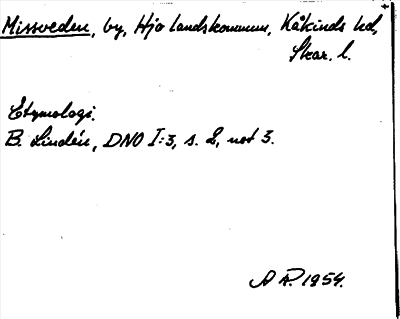 Missveden, by, Hjo landskommun, Kåkinds hd,
Skar. l.
Etymologi.
B. Lindén, DNO I:3, s. 8, not 3.
A R. 1954.